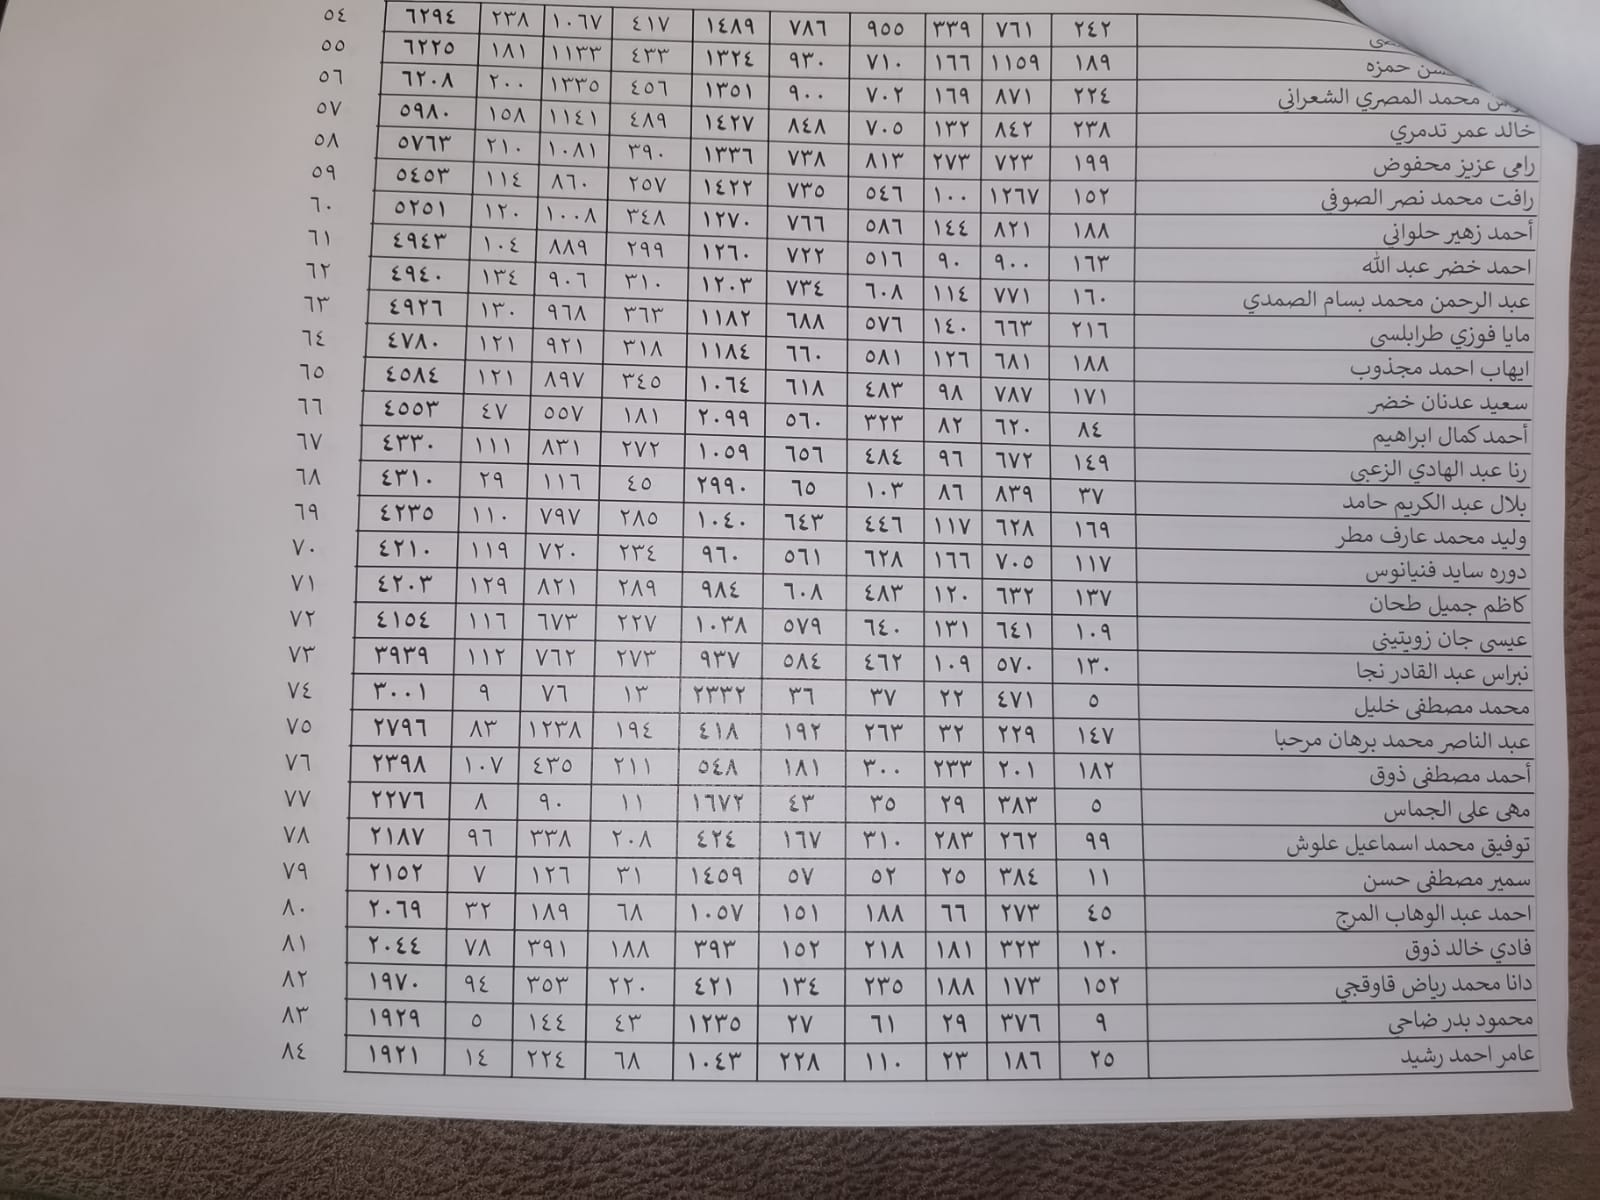 ى ٢٤٢ ٧٦١ ٣٣٩ ٩٥٥ ٧٨٦ ١٤٨٩ ٤١٧ ١٠٦٧ ٢٣٨ ٦٢٩٤ ٥٤
حمزه ١٨٩ ١١٥٩ ١٦٦ ٧١٠ ٩٣٠ ١٣٢٤ ٤٣٣ ١١٣٣ ١٨١ ٦٢٢٥ ٥٥
محمد المصري الشعراني ٢٢٤ ٨٧١ ١٦٩ ٧٠٢ ٩٠٠ ١٣٥١ ٤٥٦ ١٣٣٥ ٢٠٠ ٦٢٠٨ ٥٦
خالد عمر تدمري ٢٣٨ ٨٤٢ ١٣٢ ٧٠٥ ٨٤٨ ١٤٢٧ ٤٨٩ ١١٤١ ١٥٨ ٥٩٨٠ ٥٧
رامي عزيز محفوض ١٩٩ ٧٢٣ ٢٧٣ ٨١٣ ٧٣٨ ١٣٣٦ ٣٩٠ ١٠٨١ ٢١٠ ٥٧٦٣ ٥٨
رافت محمد نصر الصوفي ١٥٢ ١٢٦٧ ١٠٠ ٥٤٦ ٧٣٥ ١٤٢٢ ٢٥٧ ٨٦٠ ١١٤ ٥٤٥٣ ٥٩
أحمد زهير حلواني ١٨٨ ٨٢١ ١٤٤ ٥٨٦ ٧٦٦ ١٢٧٠ ٣٤٨ ١٠٠٨ ١٢٠ ٥٢٥١ ٦٠
احمد خضر عبد الله ١٦٣ ٩٠٠ ٩٠ ٥١٦ ٧٢٢ ١٢٦٠ ٢٩٩ ٨٨٩ ١٠٤ ٤٩٤٣ ٦١
عبد الرحمن محمد بسام الصمدي ١٦٠ ٧٧١ ١١٤ ٦٠٨ ٧٣٤ ١٢٠٣ ٣١٠ ٩٠٦ ١٣٤ ٤٩٤٠ ٦٢
مايا فوزي طرابلسى ٢١٦ ٦٦٣ ١٤٠ ٥٧٦ ٦٨٨ ١١٨٢ ٣٦٣ ٩٦٨ ١٣٠ ٤٩٢٦ ٦٣
ايهاب احمد مجذوب ١٨٨ ٦٨١ ١٢٦ ٥٨١ ٦٦٠ ١١٨٤ ٣١٨ ٩٢١ ١٢١ ٤٧٨٠ ٦٤
سعيد عدنان خضر ١٧١ ٧٨٧ ٩٨ ٤٨٣ ٦١٨ ١٠٦٤ ٣٤٥ ٨٩٧ ١٢١ ٤٥٨٤ ٦٥
أحمد كمال ابراهيم ٨٤ ٦٢٠ ٨٢ ٣٢٣ ٥٦٠ ٢٠٩٩ ١٨١ ٥٥٧ ٤٧ ٤٥٥٣ ٦٦
رنا عبد الهادي الزعبى ١٤٩ ٦٧٢ ٩٦ ٤٨٤ ٦٥٦ ١٠٥٩ ٢٧٢ ٨٣١ ١١١ ٤٣٣٠ ٦٧
بلال عبد الكريم حامد ٣٧ ٨٣٩ ٨٦ ١٠٣ ٦٥ ٢٩٩٠ ٤٥ ١١٦ ٢٩ ٤٣١٠ ٦٨
وليد محمد عارف مطر ١٦٩ ٦٢٨ ١١٧ ٤٤٦ ٦٤٣ ١٠٤٠ ٢٨٥ ٧٩٧ ١١٠ ٤٢٣٥ ٦٩
دوره سايد فنيانوس ١١٧ ٧٠٥ ١٦٦ ٦٢٨ ٥٦١ ٩٦٠ ٢٣٤ ٧٢٠ ١١٩ ٤٢١٠ ٧٠
كاظم جميل طحان ١٣٧ ٦٣٢ ١٢٠ ٤٨٣ ٦٠٨ ٩٨٤ ٢٨٩ ٨٢١ ١٢٩ ٤٢٠٣ ٧١
عيسى جان زويتينى ١٠٩ ٦٤١ ١�١ ٦٤٠ ٥٧٩ ١٠٣٨ ٢٢٧ ٦٧٣ ١١٦ ٤١٥٤ ٧٢
نبراس عبد القادر نجا ١٣٠ ٥٧٠ ١٠٩ ٤٦٢ ٥٨٤ ٩٣٧ ٢٧٣ ٧٦٢ ١١٢ ٣٩٣٩ ٧٣
محمد مصطفى خليل ٥ ٤٧١ ٢٢ ٣٧ ٣٦ ٢٣٣٢ ١٣ ٧٦ ٩ ٣٠٠١ ٧٤
عبد الناصر محمد برهان مرحبا ١٤٧ ٢٢٩ ٣٢ ٢٦٣ ١٩٢ ٤١٨ ١٩٤ ١٢٣٨ ٨٣ ٢٧٩٦ ٧٥
أحمد مصطفى ذوق ١٨٢ ٢٠١ ٢٣٣ ٣٠٠ ١٨١ ٥٤٨ ٢١١ ٤٣٥ ١٠٧ ٢٣٩٨ ٧٦
مهى على الجماس ٥ ٣٨٣ ٢٩ ٣٥ ٤٣ ١٦٧٢ ١١ ٩٠ ٨ ٢٢٧٦ ٧٧
توفيق محمد اسماعيل علوش ٩٩ ٢٦٢ ٢٨٣ ٣١٠ ١٦٧ ٤٢٤ ٢٠٨ ٣٣٨ ٩٦ ٢١٨٧ ٧٨
سمير مصطفى حسن ١١ ٣٨٤ ٢٥ ٥٢ ٥٧ ١٤٥٩ ٣١ ١٢٦ ٧ ٢١٥٢ ٧٩
احمد عبد الوهاب المرج ٤٥ ٢٧٣ ٦٦ ١٨٨ ١٥١ ١٠٥٧ ٦٨ ١٨٩ ٣٢ ٢٠٦٩ ٨٠
فادي خالد ذوق ١٢٠ ٣٢٣ ١٨١ ٢١٨ ١٥٢ ٣٩٣ ١٨٨ ٣٩١ ٧٨ ٢٠٤٤ ٨١
دانا محمد رياض قاوقجي ١٥٢ ١٧٣ ١٨٨ ٢٣٥ ١٣٤ ٤٢١ ٢٢٠ ٣٥٣ ٩٤ ١٩٧٠ ٨٢
محمود بدر ضاحي ٩ ٣٧٦ ٢٩ ٦١ ٢٧ ١٢٣٥ ٤٣ ١٤٤ ٥ ١٩٢٩ ٨٣
عامر احمد رشيد ٢٥ ١٨٦ ٢٣ ١١٠ ٢٢٨ ١٠٤٣ ٦٨ ٢٢٤ ١٤ ١٩٢١ ٨٤